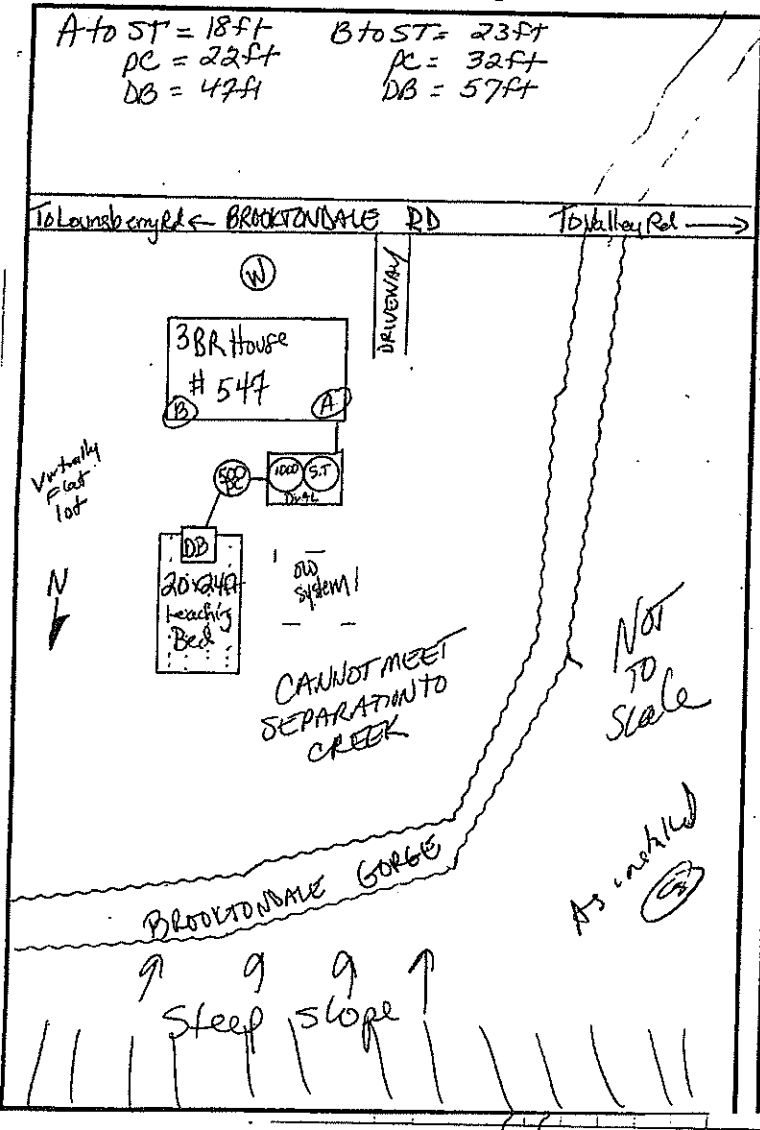 A to ST = 18ft
PC = 22ft
DB = 47ft
B to ST = 23ft
PC = 32ft
DB = 57ft
To Lounsberry Rd ← BROOKTONDALE RD
To Valley Rd →
W
DRIVEWAY
3 BR House
# 547
B
A
Virtually
Flat
lot
500
PC
1000
S.T
Dual
DB
20x24ft
Leaching
Bed
N
old
system
CANNOT MEET
SEPARATION TO
CREEK
NOT
TO
Scale
BROOKTONDALE GORGE
As installed
Steep slope